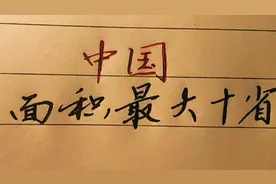 中国
面积,最大十省